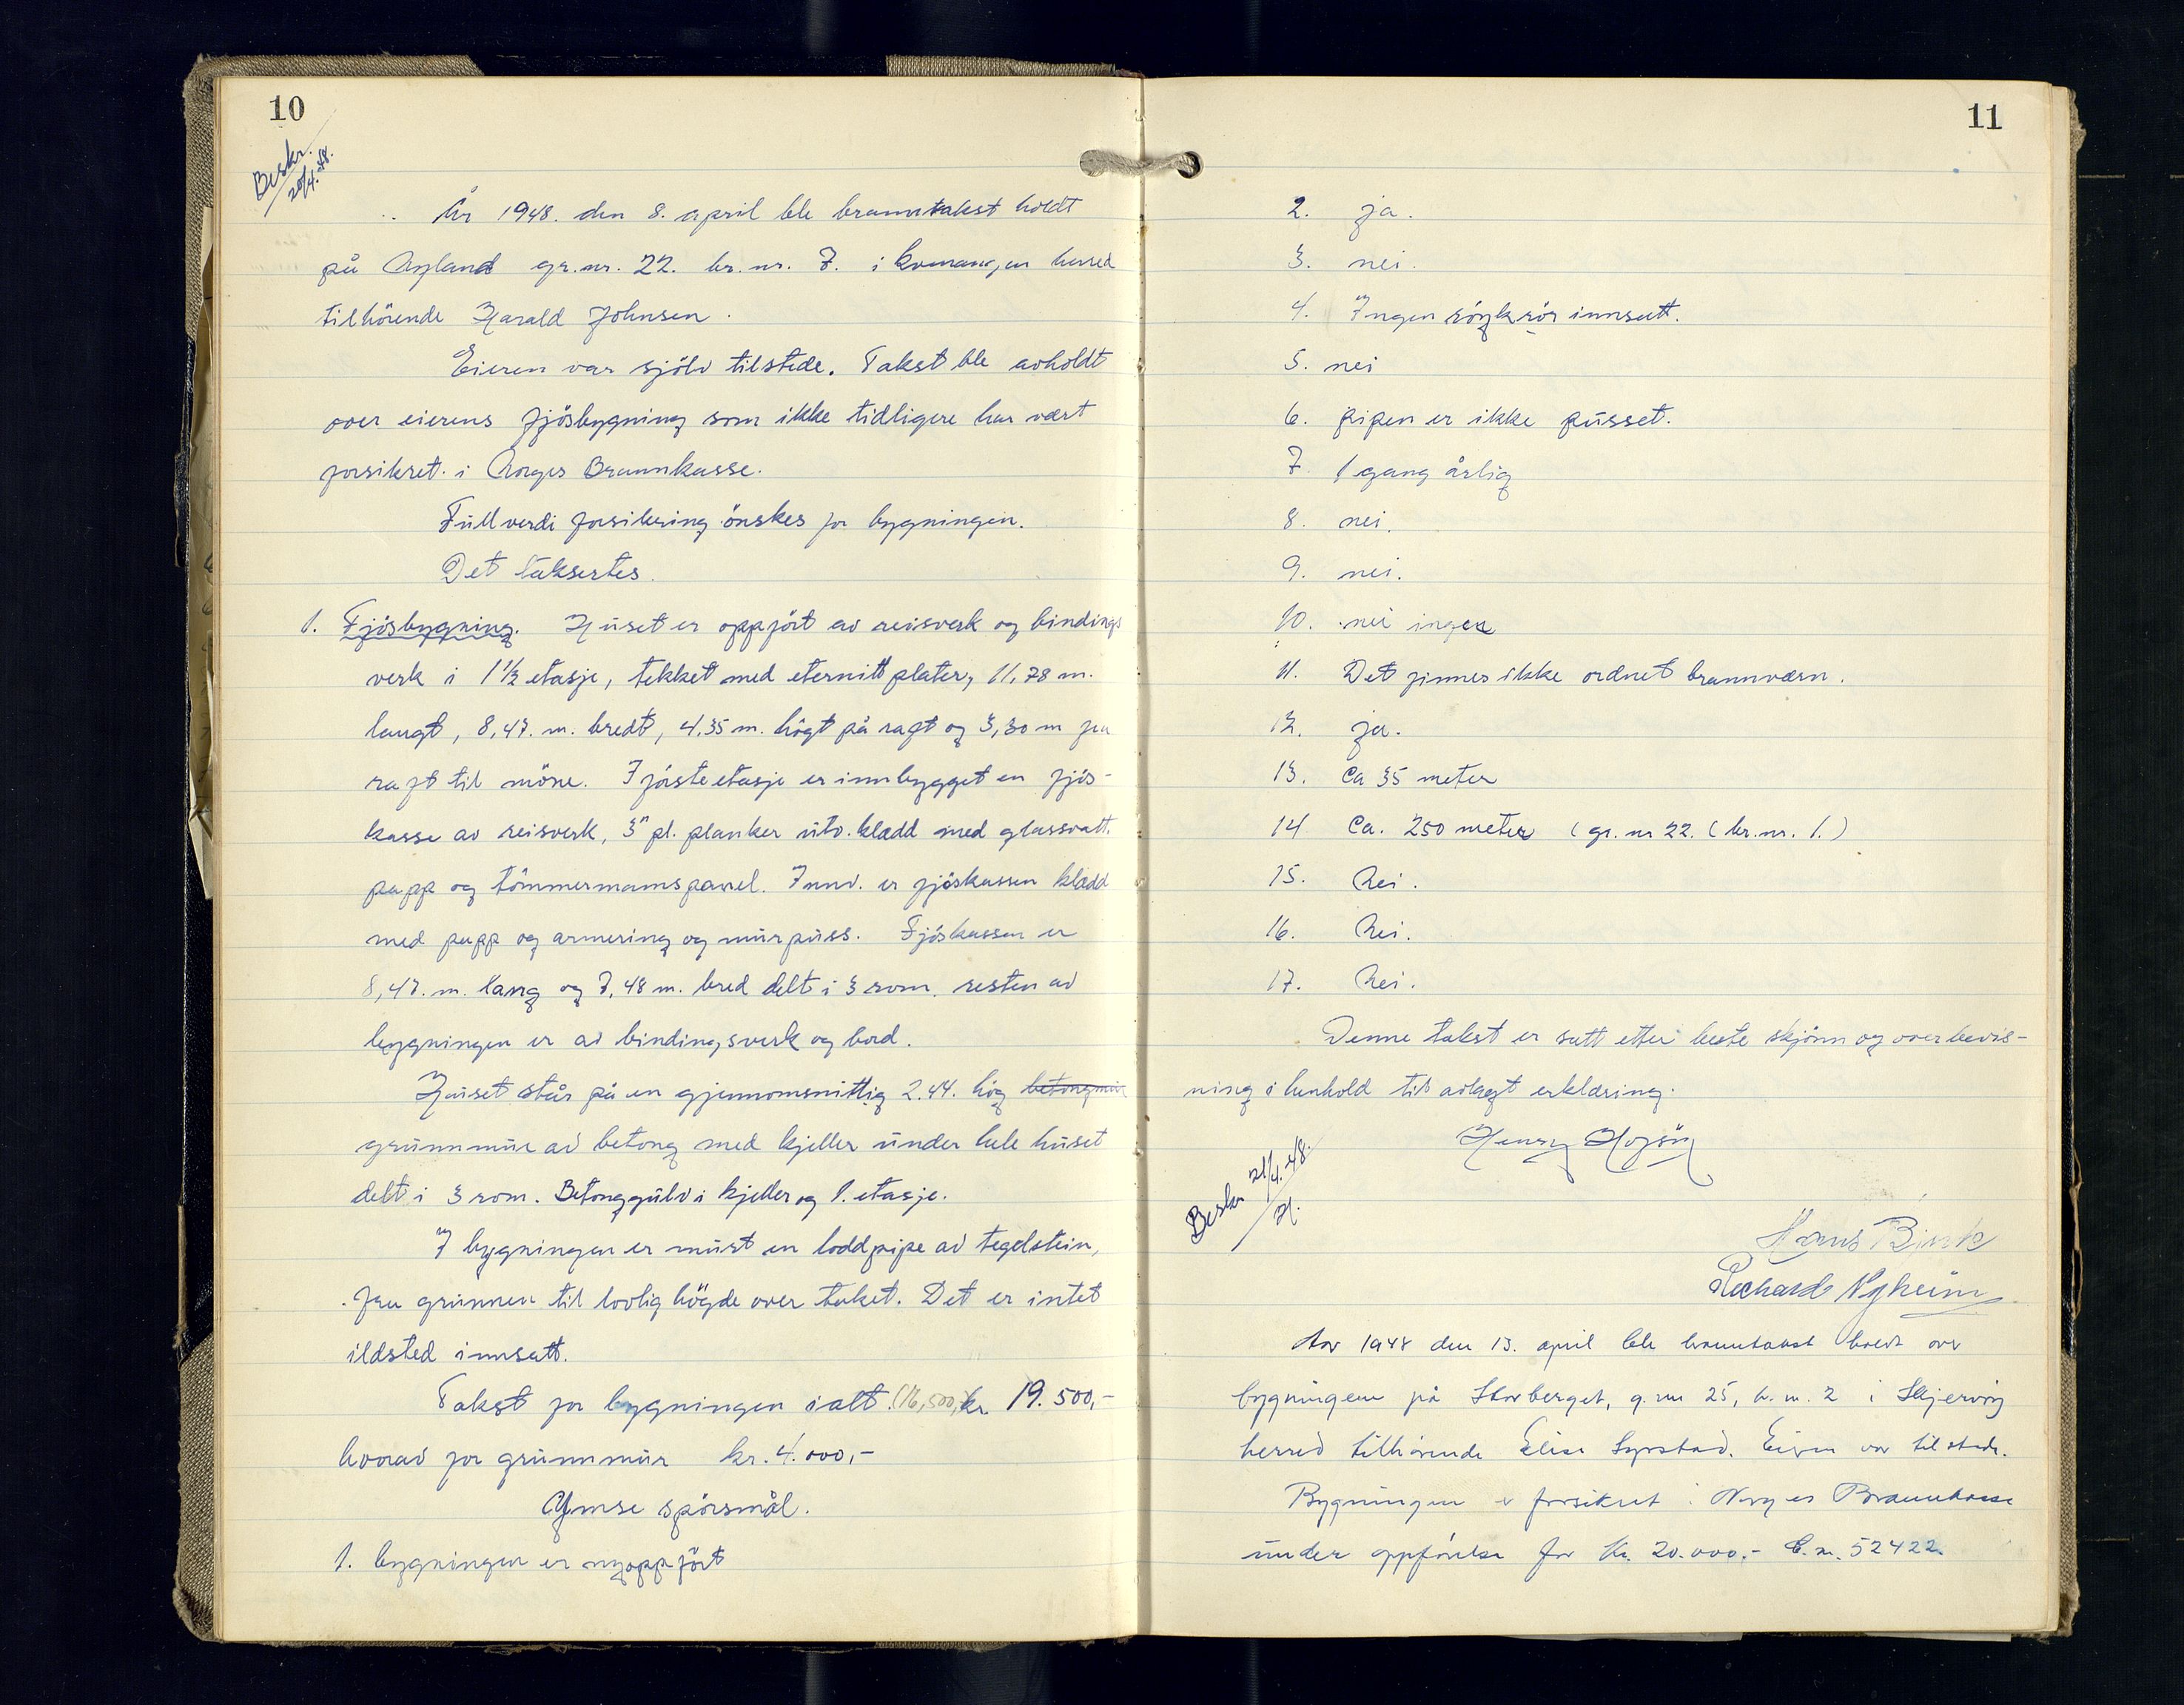 10
Beskr.
20/4.-48.
År 1948. den 8. april ble branntakst holdt
på Nyland gr.nr. 22. br.nr. 7. i Kvænangen herred
tilhörende Harald Johnsen.
Eieren var sjölv tilstede. Takst ble avholdt
over eierens fjösbygning som ikke tidligere har vært
forsikret i Norges Brannkasse.
Fullverdi forsikring önskes for bygningen.
Det taksertes.
1. Fjösbygning. Huset er oppfört av reisverk og bindings
verk i 1 1/2 etasje, tekket med eternittplater, 11,78 m.
langt, 8,47. m. bredt, 4,35 m. högt på raft og 3,30 m fra
raft til möne. I förste etasje er innbygget en fjös-
kasse av reisverk, 3" pl. planker utv. kledd med glassvatt.
papp og tömmermannspanel. Innv. er fjöskassen kledd
med papp og armering og murpuss. Fjöskassen er
8,47. m. lang og 7,48 m. bred delt i 3 rom. resten av
bygningen er av bindingsverk og bord.
Huset står på en gjennomsnittlig 2.44. hög betongmur
grunnmur av betong med kjeller under hele huset
delt i 3 rom. Betonggulv i kjeller og 1. etasje.
I bygningen er murt en loddpipe av tegelstein,
fra grunnen til lovlig högde over taket. Det er intet
ildsted innsatt.
Takst for bygningen ialt. (16,500,-) kr. 19.500,-
hvorav for grunnmur kr. 4.000,-
Ymse spörsmål.
1. bygningen er nyoppfört
11
2. ja.
3. nei.
4. Ingen röykrör innsatt.
5. nei
6. pipen er ikke pusset.
7. 1 gang årlig
8. nei.
9. nei.
10. nei ingen
11. Det finnes ikke ordnet brannværn.
12. ja.
13. Ca 35 meter
14 Ca. 250 meter (gr. nr 22. (br. nr. 1.)
15. Nei.
16. Nei.
17. Nei.
Denne takst er satt etter beste skjönn og overbevis-
ning i henhold til avlagt erklæring.
Henry
Beskr 21/4.-48.
H.
Hans Bjørk
Richard Nyheim
Aar 1948 den 13. april ble branntakst holdt over
bygningen på Storberget, g. nr 25, b. nr. 2 i Skjervöy
herred tilhörende Elise Eieren var tilstede.
Bygningen er forsikret i Norges Brannkasse
under oppförelse for kr. 20.000.- C. nr. 52422.